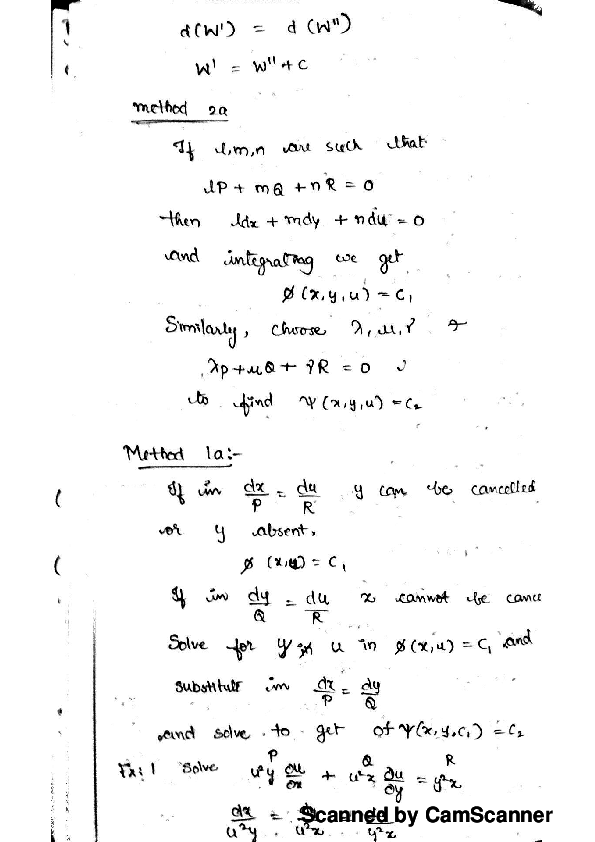 d(W') = d(W")
W' = W" + C
method 2a
If l,m,n are such that
lP + mQ + nR = 0
then ldx + mdy + ndu = 0
and integrating we get
φ(x,y,u) = C₁
Similarly, choose λ, μ, γ
λp + μQ + γR = 0
to find ψ(x,y,u) = C₂
Method 1a:-
If in dx/P = du/R y can be cancelled
or y absent,
φ(x,u) = C₁
If in dy/Q = du/R x cannot be cance
Solve for u in φ(x,u) = C₁ and
substitute in dx/P = dy/Q
and solve to get of ψ(x,y,C₁) = C₂
P Q R
Ex: 1 Solve u²y ∂u/∂x + u²x ∂u/∂y = y²x
dx/u²y = /u²x = /y²x
Scanned by CamScanner